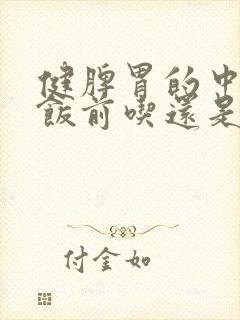 健脾胃的中
飯前喫還是
付金如